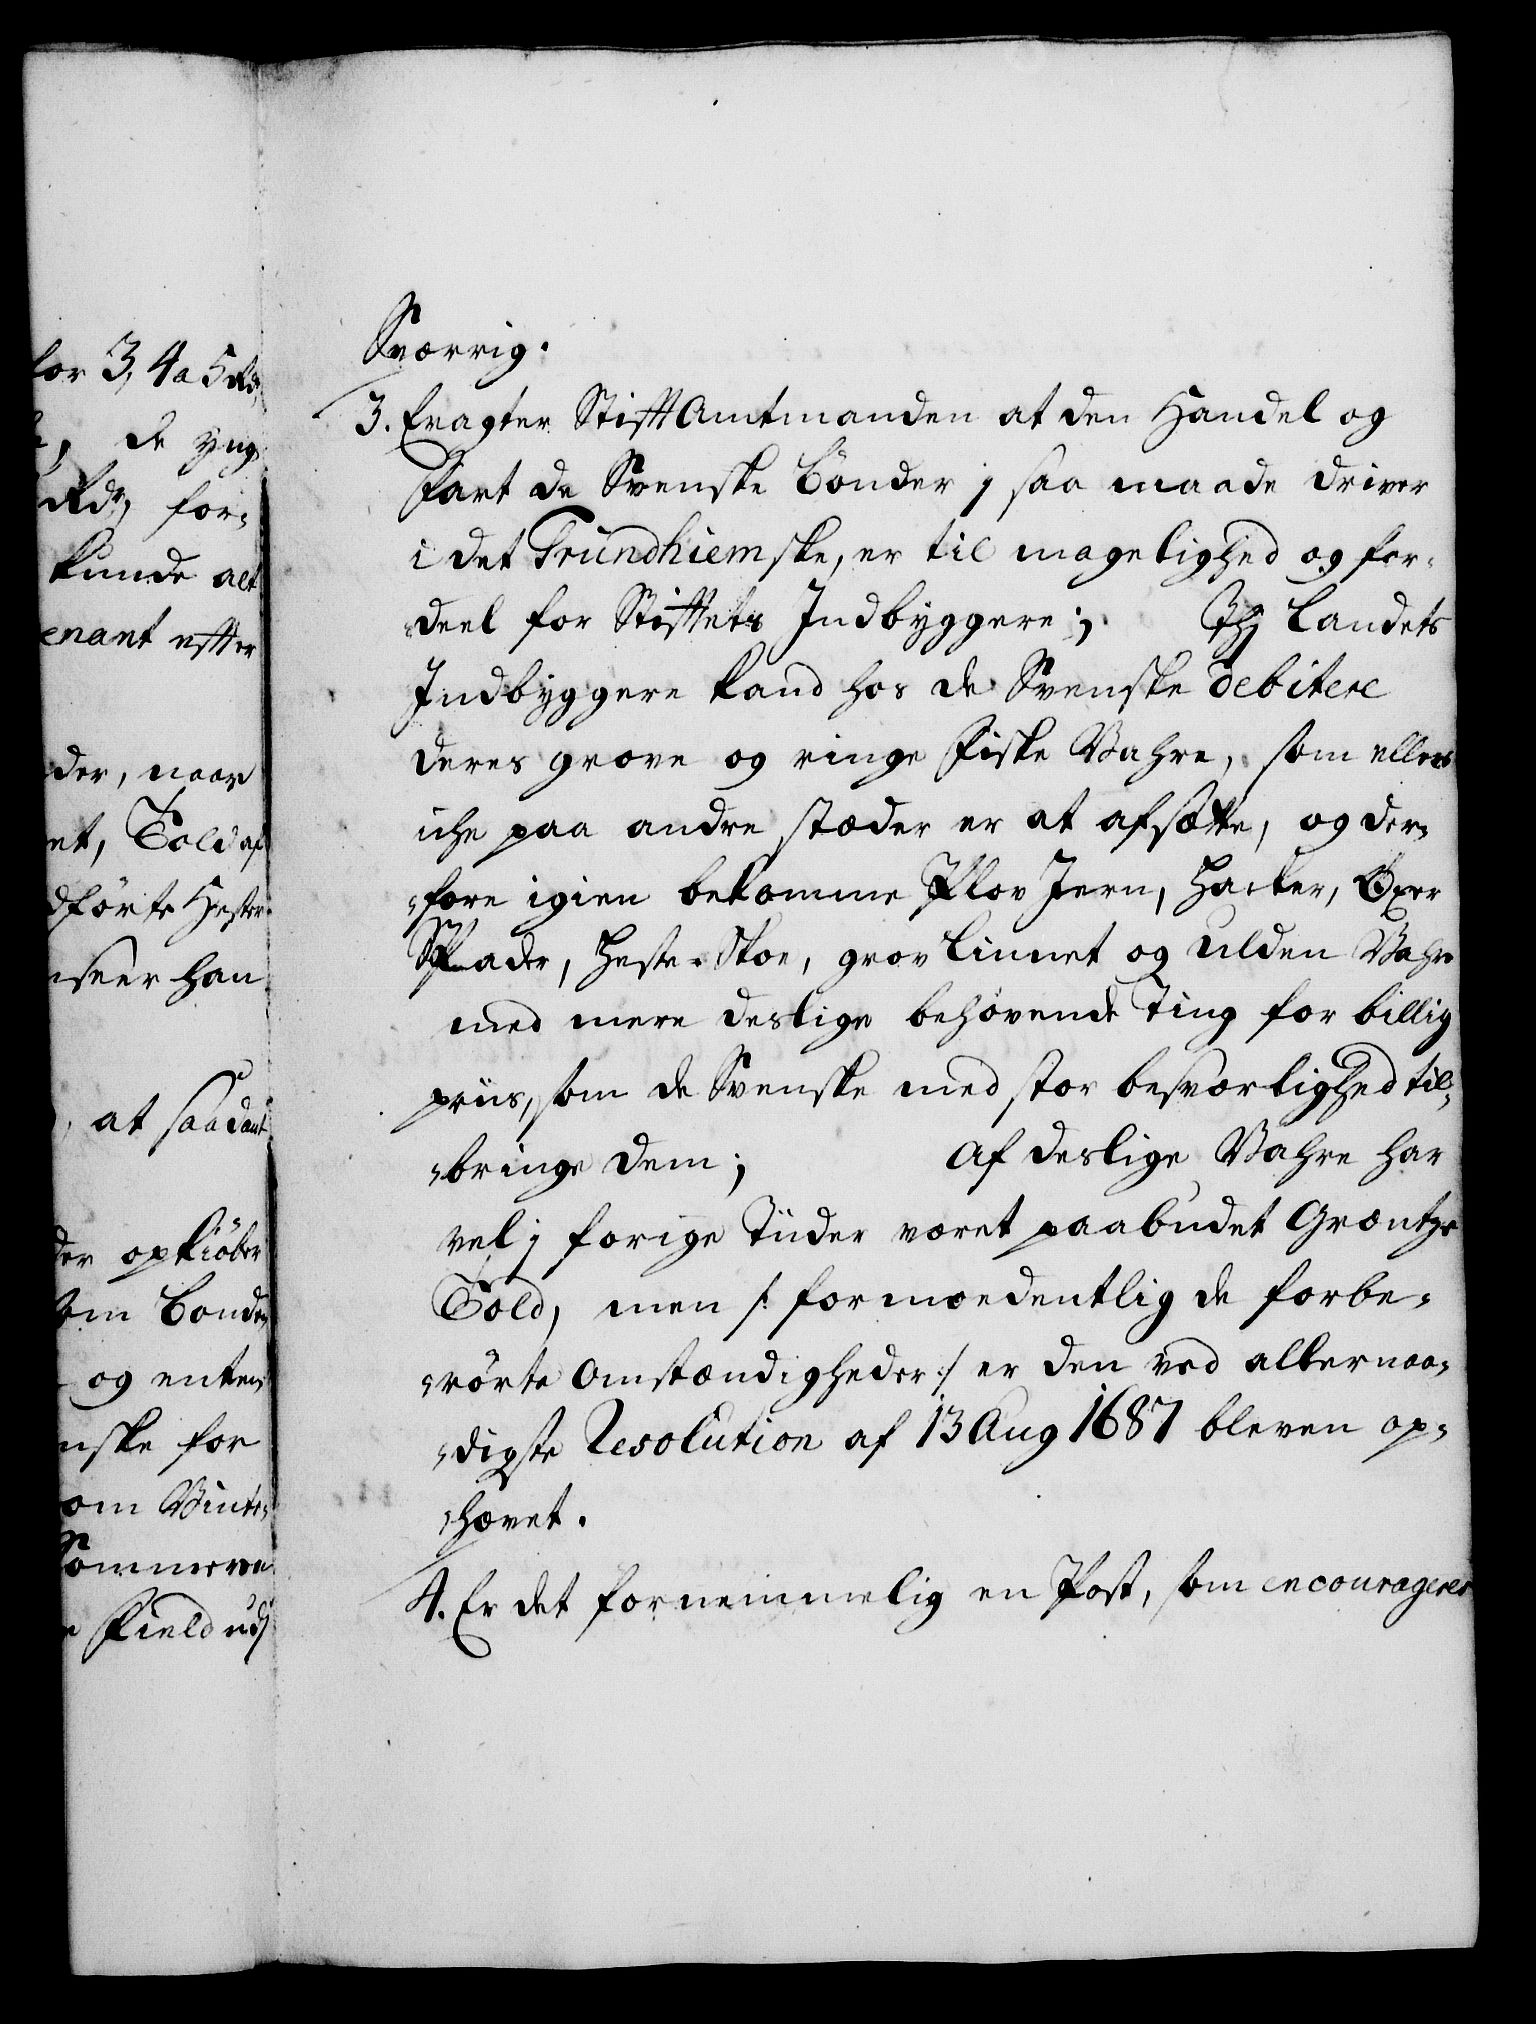 for 3, 4 a 5 Rdr,
de yng-
Rdr, for-
kunde alt
enant effter
der, naar
et, Told af
dförte Hester
nseer han
, at saadant
der opkiöber
som Bonden
og enten
nske for
om Vinter
Sommeren
e Field udj
Sværrig.
3. Eragter Stifft Amtmanden at den Handel og
Fart de Svenske Bönder j saa maade driver
i det Trundhiemske, er til magelighed og for-
-deel for Stifftets Indbyggere; Thj Landets
Indbyggere kand hos de Svenske debitere
deres grove og ringe Fiske Vahre, som ellers
iche paa andre stæder er at afsætte, og der-
-fore igien bekomme Plov Jern, Hacker, Öxer
Spader, Heste-Skoe, grov Linnet og ulden Vahre
med mere deslige behövende Ting for billig
priis, som de Svenske med stor besværlighed til-
-bringe dem; Af deslige Vahre har
vel j forige Tiider været paabudet Græntze
Told, men /: formoedentlig de forbe-
-rörte Omstændigheder :/ er den ved allernaa-
-digste Resolution af 13 Aug 1687 bleven op-
-hævet.
4. Er det fornemmelig en Post, som encouragerer